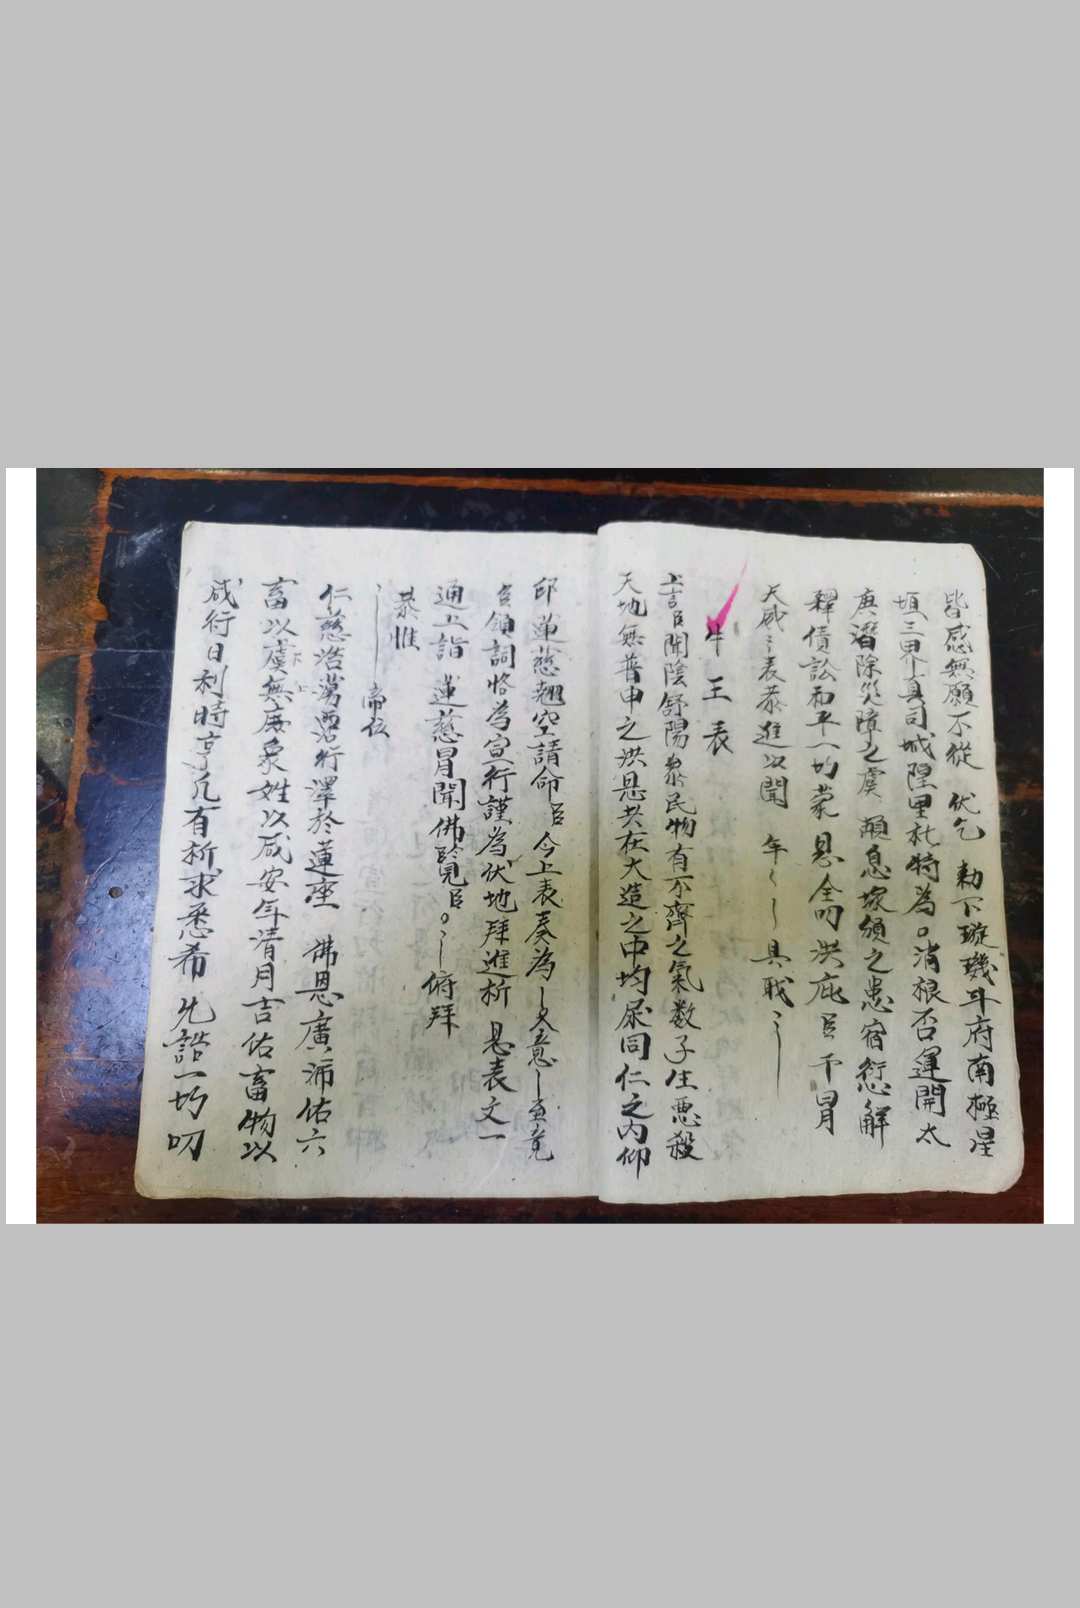 皆感無願不從　伏乞　勅下璇璣斗府南極星
垣三界真司城隍里社特為○消根否運開太
庚潛除災障之虞　頓息壞傾之患宿愆解
釋債訟和平一切蒙　恩全叨洪庇臣干冒
天威〻表恭進以聞　年〻丨具戰〻丨
牛王表
上言臣聞陰舒陽衆民物有不齊之氣数子生惡殺
天地無普申之洪恩共在大造之中均屎同仁之内仰
邱蓮慈翹空請命臣今上表奏為丨文意丨意竟
臣領詞恪為宣行謹為伏地拜進祈　恩表文一
通上詣　蓮慈冒聞佛覽臣○〻丨俯拜
恭惟
〻丨帝位
仁慈浩蕩思行澤於蓮座　佛恩廣沛佑六
畜以虞無虞衆姓以咸安年清月吉佑畜物以
下上
咸行日利時亨凡有祈求悉希　允誥一切叨